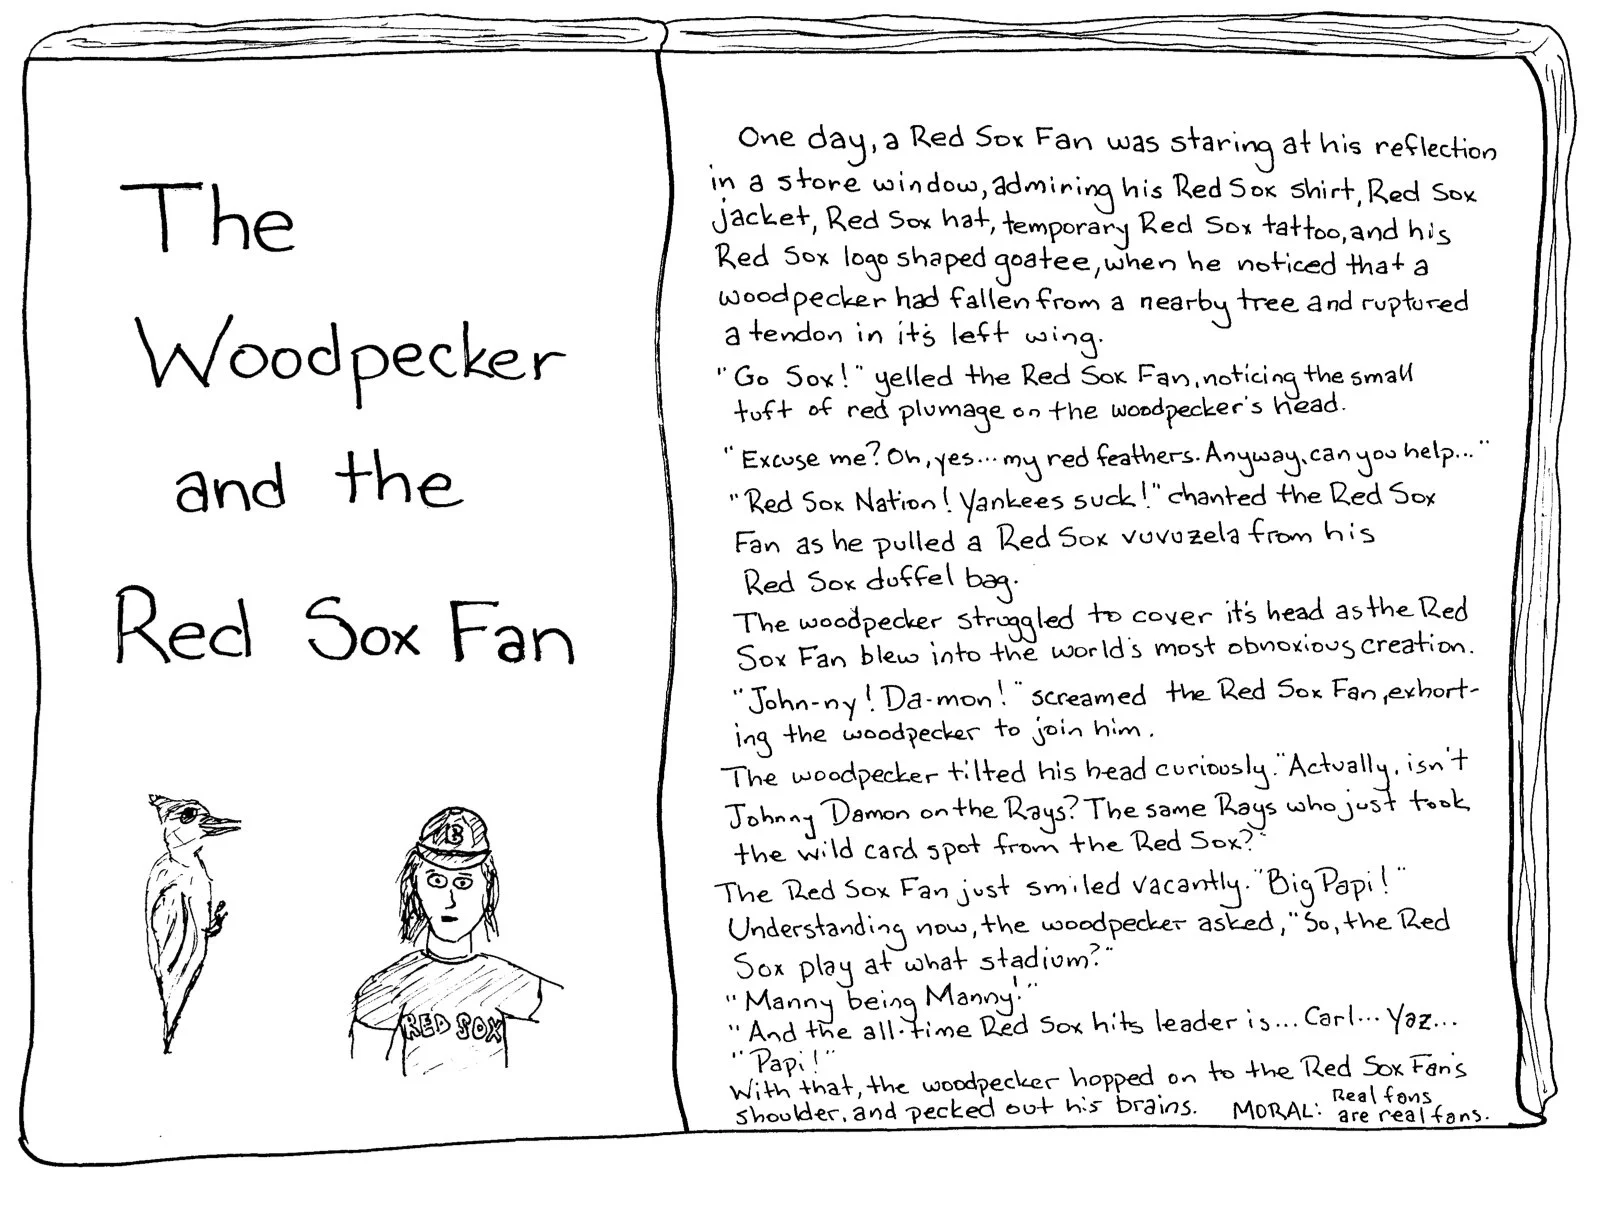 The
Woodpecker
and the
Red Sox Fan
B
RED SOX
One day, a Red Sox Fan was staring at his reflection
in a store window, admiring his Red Sox shirt, Red Sox
jacket, Red Sox hat, temporary Red Sox tattoo, and his
Red Sox logo shaped goatee, when he noticed that a
woodpecker had fallen from a nearby tree and ruptured
a tendon in it's left wing.
"Go Sox!" yelled the Red Sox Fan, noticing the small
tuft of red plumage on the woodpecker's head.
"Excuse me? Oh, yes... my red feathers. Anyway, can you help..."
"Red Sox Nation! Yankees suck!" chanted the Red Sox
Fan as he pulled a Red Sox vuvuzela from his
Red Sox duffel bag.
The woodpecker struggled to cover it's head as the Red
Sox Fan blew into the world's most obnoxious creation.
"John-ny! Da-mon!" screamed the Red Sox Fan, exhort-
ing the woodpecker to join him.
The woodpecker tilted his head curiously. "Actually, isn't
Johnny Damon on the Rays? The same Rays who just took
the wild card spot from the Red Sox?"
The Red Sox Fan just smiled vacantly. "Big Papi!"
Understanding now, the woodpecker asked, "So, the Red
Sox play at what stadium?"
"Manny being Manny!"
"And the all-time Red Sox hits leader is... Carl... Yaz...
"Papi!"
With that, the woodpecker hopped on to the Red Sox Fan's
shoulder, and pecked out his brains. MORAL: Real fans
are real fans.